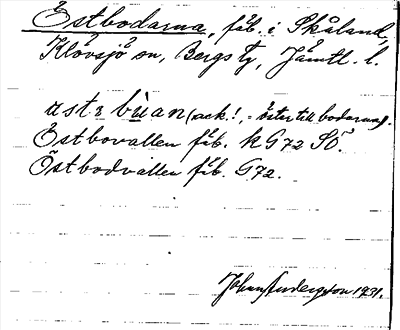 Östbodarna, fäb. i Skåland,
Klövsjö sn, Bergs tg, Jämtl. l.
östbùan (ack.! = öster till bodarna).
Östbovallen fäb. kG72 SÖ.
Östbodvallen fäb. G72.
Johan Anderson 1931.